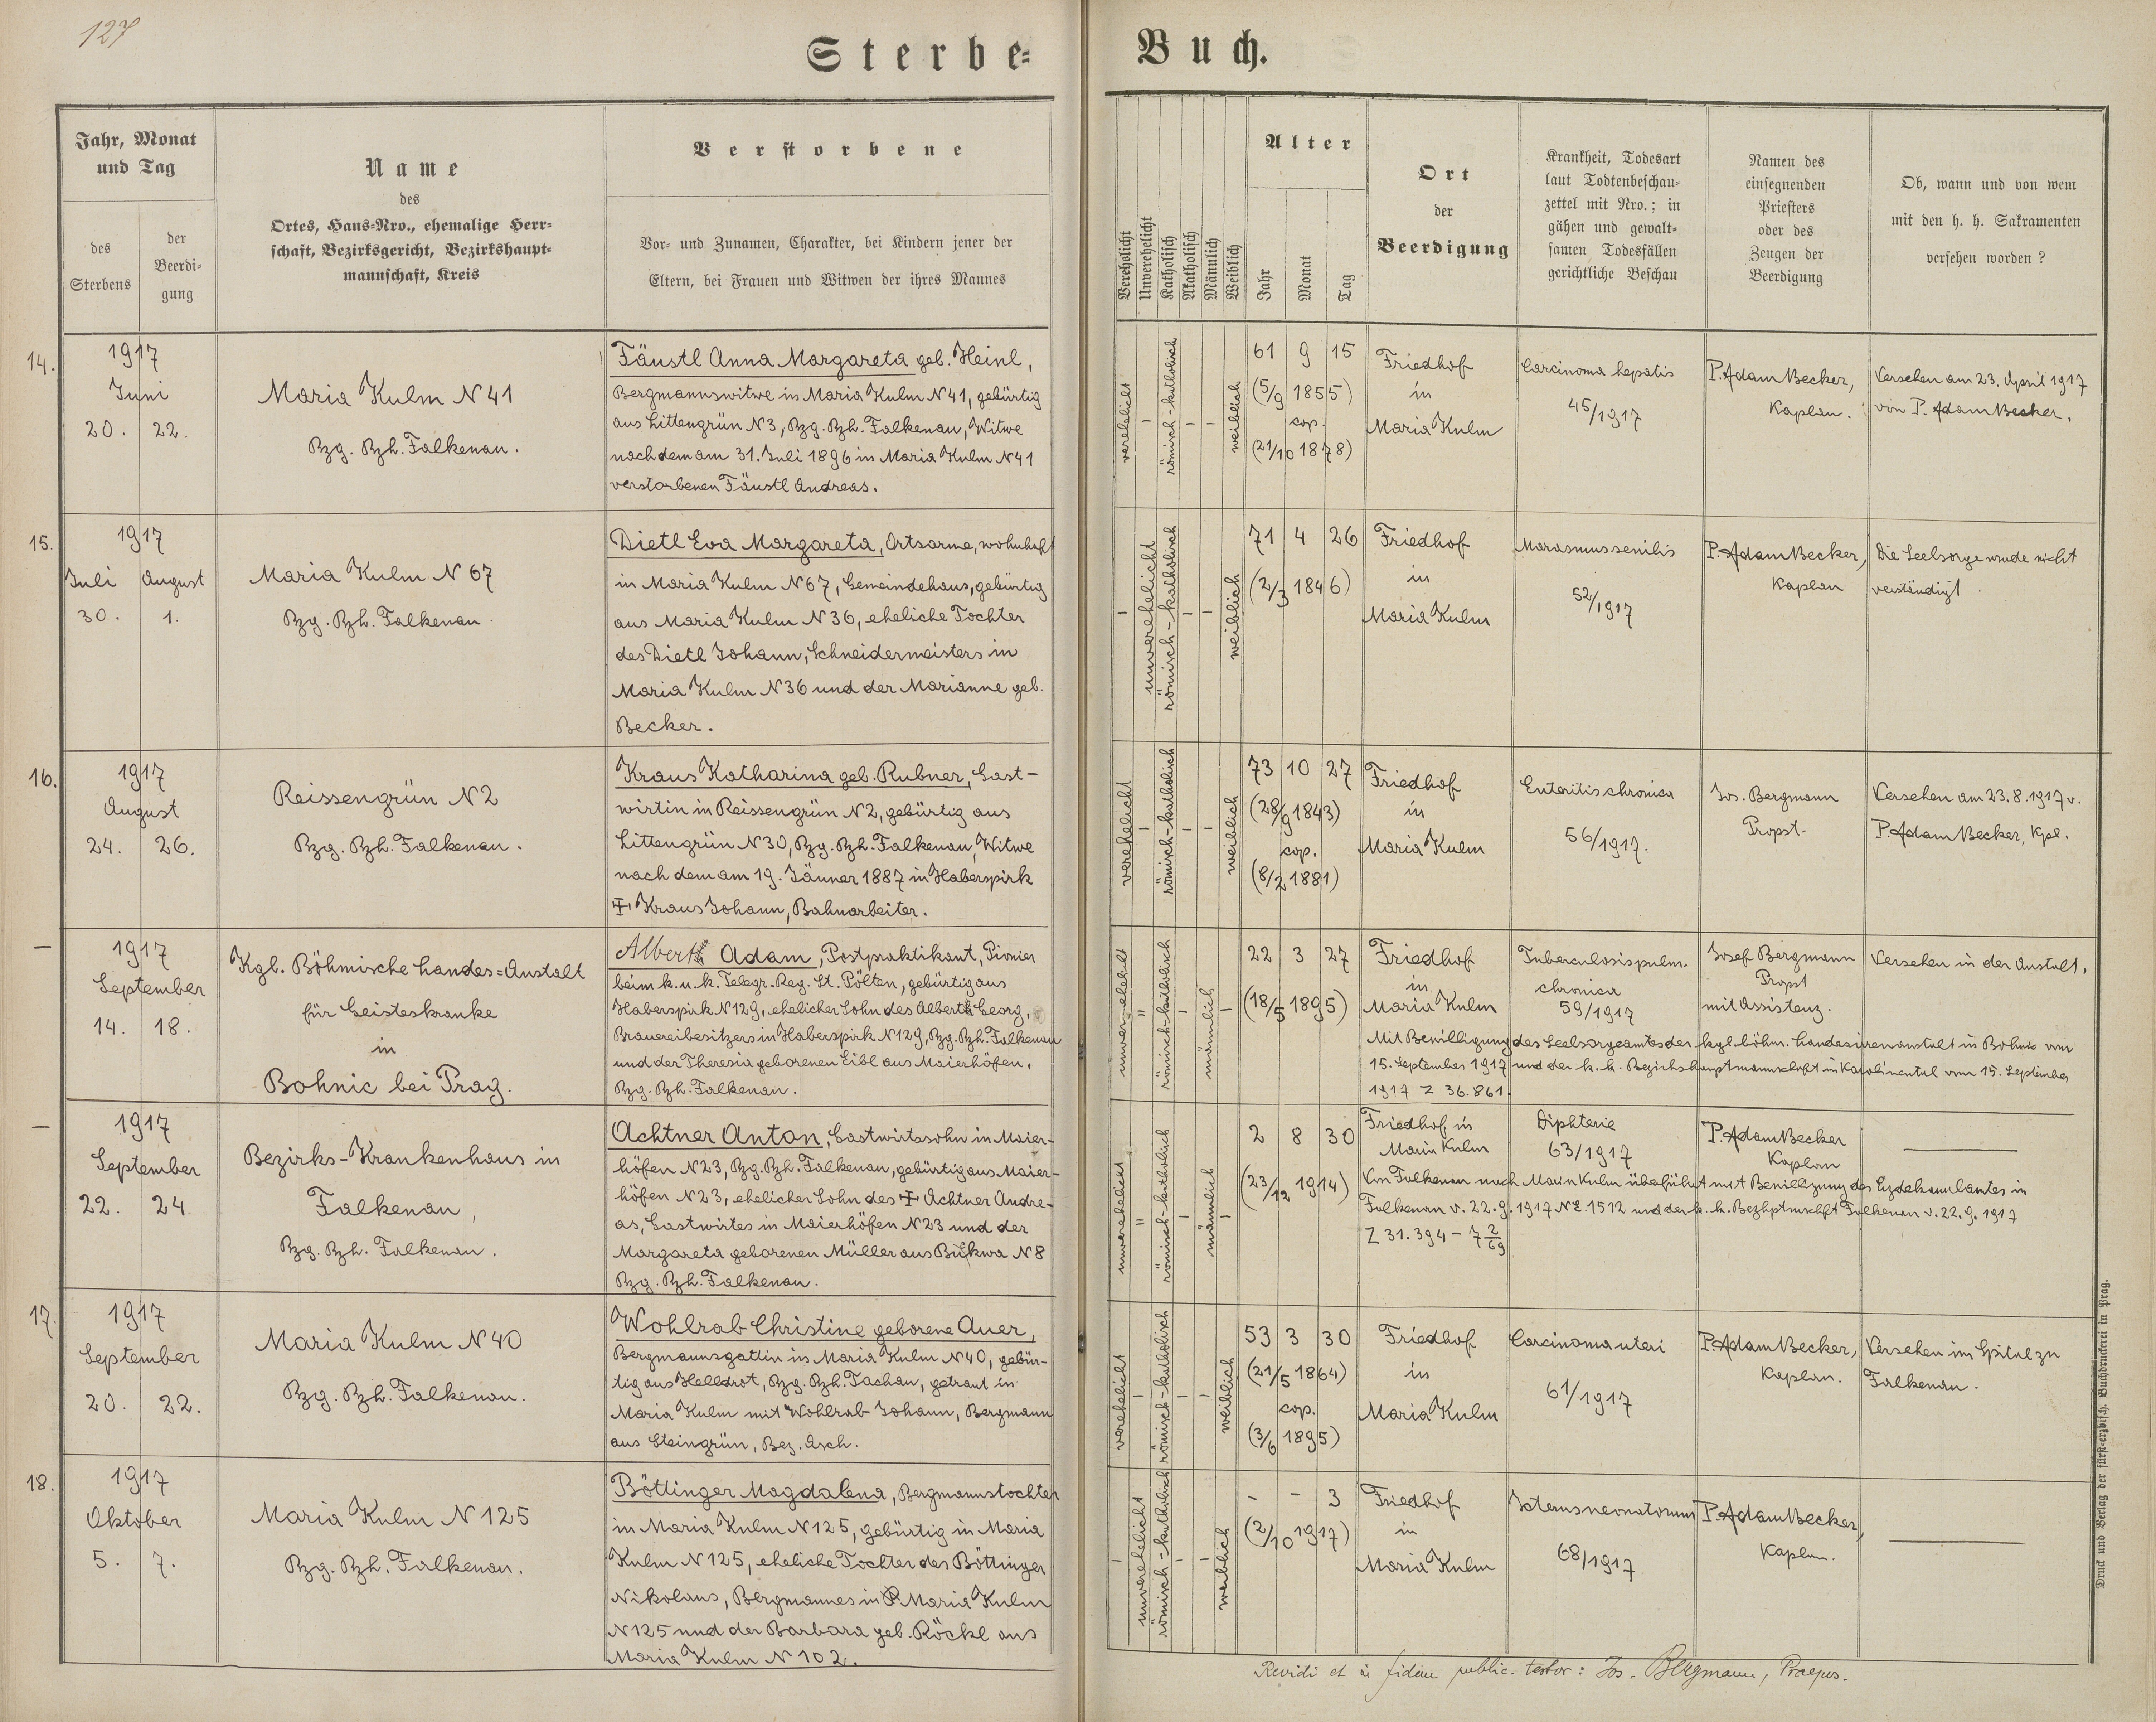 127
Sterbe-
Buch.
Jahr, Monat
und Tag
des
Sterbens
der
Beerdi-
gung
Name
des
Ortes, Haus-Nro., ehemalige Herr-
schaft, Bezirksgericht, Bezirkshaupt-
mannschaft, Kreis
Verstorbene
Vor- und Zunamen, Charakter, bei Kindern jener der
Eltern, bei Frauen und Witwen der ihres Mannes
Verehelicht
Unverehelicht
Katholisch
Akatholisch
Männlich
Weiblich
Alter
Jahr
Monat
Tag
Ort
der
Beerdigung
Krankheit, Todesart
laut Todtenbeschau-
zettel mit Nro.; in
gähen und gewalt-
samen Todesfällen
gerichtliche Beschau
Namen des
einsegnenden
Priesters
oder des
Zeugen der
Beerdigung
Ob, wann und von wem
mit den h. h. Sakramenten
versehen worden ?
14.
1917
Juni
20. 22.
Maria Kulm N 41
Bzg. Bzh. Falkenau.
Fäustl Anna Margareta geb. Heinl,
Bergmannswitwe in Maria Kulm N 41, gebürtig
aus Littengrün N 3, Bzg. Bzh. Falkenau, Witwe
nach dem am 31. Juli 1896 in Maria Kulm N 41
verstorbenen Fäustl Andreas.
verehelicht
–
römisch-katholisch
–
–
weiblich
61 9 15
(5/9 1855)
cop.
(21/10 1878)
Friedhof
in
Maria Kulm
Carcinoma hepatis
45/1917
P. Adam Becker,
Kaplan.
Versehen am 23. April 1917
von P. Adam Becker.
15.
1917
Juli August
30. 1.
Maria Kulm N 67
Bzg. Bzh. Falkenau.
Dietl Eva Margareta, Ortsarme, wohnhaft
in Maria Kulm N 67, Gemeindehaus, gebürtig
aus Maria Kulm N 36, eheliche Tochter
des Dietl Johann, Schneidermeisters in
Maria Kulm N 36 und der Marianne geb.
Becker.
–
unverehelicht
römisch-katholisch
–
–
weiblich
71 4 26
(2/3 1846)
Friedhof
in
Maria Kulm
Marasmus senilis
52/1917
P. Adam Becker,
Kaplan
Die Seelsorge wurde nicht
verständigt.
16.
1917
August
24. 26.
Reissengrün N 2
Bzg. Bzh. Falkenau.
Kraus Katharina geb. Rubner, Gast-
wirtin in Reissengrün N 2, gebürtig aus
Littengrün N 30, Bzg. Bzh. Falkenau, Witwe
nach dem am 19. Jänner 1887 in Haberspirk
☩ Kraus Johann, Bahnarbeiter.
verehelicht
–
römisch-katholisch
–
–
weiblich
73 10 27
(28/9 1843)
cop.
(8/2 1881)
Friedhof
in
Maria Kulm
Enteritis chronica
56/1917.
Jos. Bergmann
Propst
Versehen am 23.8.1917 v.
P. Adam Becker, Kpl.
–
1917
September
14. 18.
Kgl. Böhmische Landes=Anstalt
für Geisteskranke
in
Bohnic bei Prag.
Albert Adam, Postpraktikant, Pionier
beim k.u.k. Telegr. Reg. St. Pölten, gebürtig aus
Haberspirk N 129, ehelicher Sohn des Albert Georg,
Brauereibesitzers in Haberspirk N 129, Bzg. Bzh. Falkenau
und der Theresia geborenen Eibl aus Maierhöfen,
Bzg. Bzh. Falkenau.
unverehelicht
"
römisch-katholisch
–
männlich
–
22 3 27
(18/5 1895)
Friedhof
in
Maria Kulm
Tuberculosis pulm.
chronica
59/1917
Josef Bergmann
Propst
mit Assistenz.
Versehen in der Anstalt.
Mit Bewilligung des Seelsorgeamtes der kgl. böhm. Landesirrenanstalt in Bohnic vom
15. September 1917 und der k. k. Bezirkshauptmannschaft in Karolinental vom 15. September
1917 Z 36.861.
–
1917
September
22. 24.
Bezirks-Krankenhaus in
Falkenau,
Bzg. Bzh. Falkenau.
Achtner Anton, Gastwirtssohn in Maier-
höfen N 23, Bzg. Bzh. Falkenau, gebürtig aus Maier-
höfen N 23, ehelicher Sohn des ☩ Achtner Andre-
as, Gastwirtes in Maierhöfen N 23 und der
Margareta geborenen Müller aus Bukwa N 8
Bzg. Bzh. Falkenau.
unverehelicht
"
römisch-katholisch
–
männlich
–
2 8 30
(23/12 1914)
Friedhof in
Maria Kulm
Diphterie
63/1917
P. Adam Becker
Kaplan
Von Falkenau nach Maria Kulm überführt mit Bewilligung des Erzdekanalamtes in
Falkenau v. 22.9.1917 N E 1512 und der k. k. Bezhptmschft Falkenau v. 22.9.1917
Z 31.394 – 7 2/69
17.
1917
September
20. 22.
Maria Kulm N 40
Bzg. Bzh. Falkenau.
Wohlrab Christine geborene Auer,
Bergmannsgattin in Maria Kulm N 40, gebür-
tig aus Helldrot, Bzg. Bzh. Tachau, getraut in
Maria Kulm mit Wohlrab Johann, Bergmann
aus Steingrün, Bez. Asch.
verehelicht
–
römisch-katholisch
–
–
weiblich
53 3 30
(21/5 1864)
cop.
(3/6 1895)
Friedhof
in
Maria Kulm
Carcinoma uteri
61/1917
P. Adam Becker,
Kaplan.
Versehen im Spital zu
Falkenau.
18.
1917
Oktober
5. 7.
Maria Kulm N 125
Bzg. Bzh. Falkenau.
Böttinger Magdalena, Bergmannstochter
in Maria Kulm N 125, gebürtig in Maria
Kulm N 125, eheliche Tochter des Böttinger
Nikolaus, Bergmannes in Maria Kulm
N 125 und der Barbara geb. Röckl aus
Maria Kulm N 102.
–
unverehelicht
römisch-katholisch
–
–
weiblich
– – 3
(2/10 1917)
Friedhof
in
Maria Kulm
Icterus neonatorum
68/1917
P. Adam Becker,
Kaplan.
Revidi et in fidem public. testor: Jos. Bergmann, Praepos.
Druck und Verlag der fürst-erzbisch. Buchdruckerei in Prag.